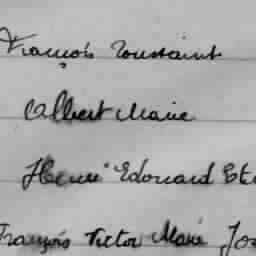 François Toussaint
Albert Marie
Henri Edouard
François Victor Marie